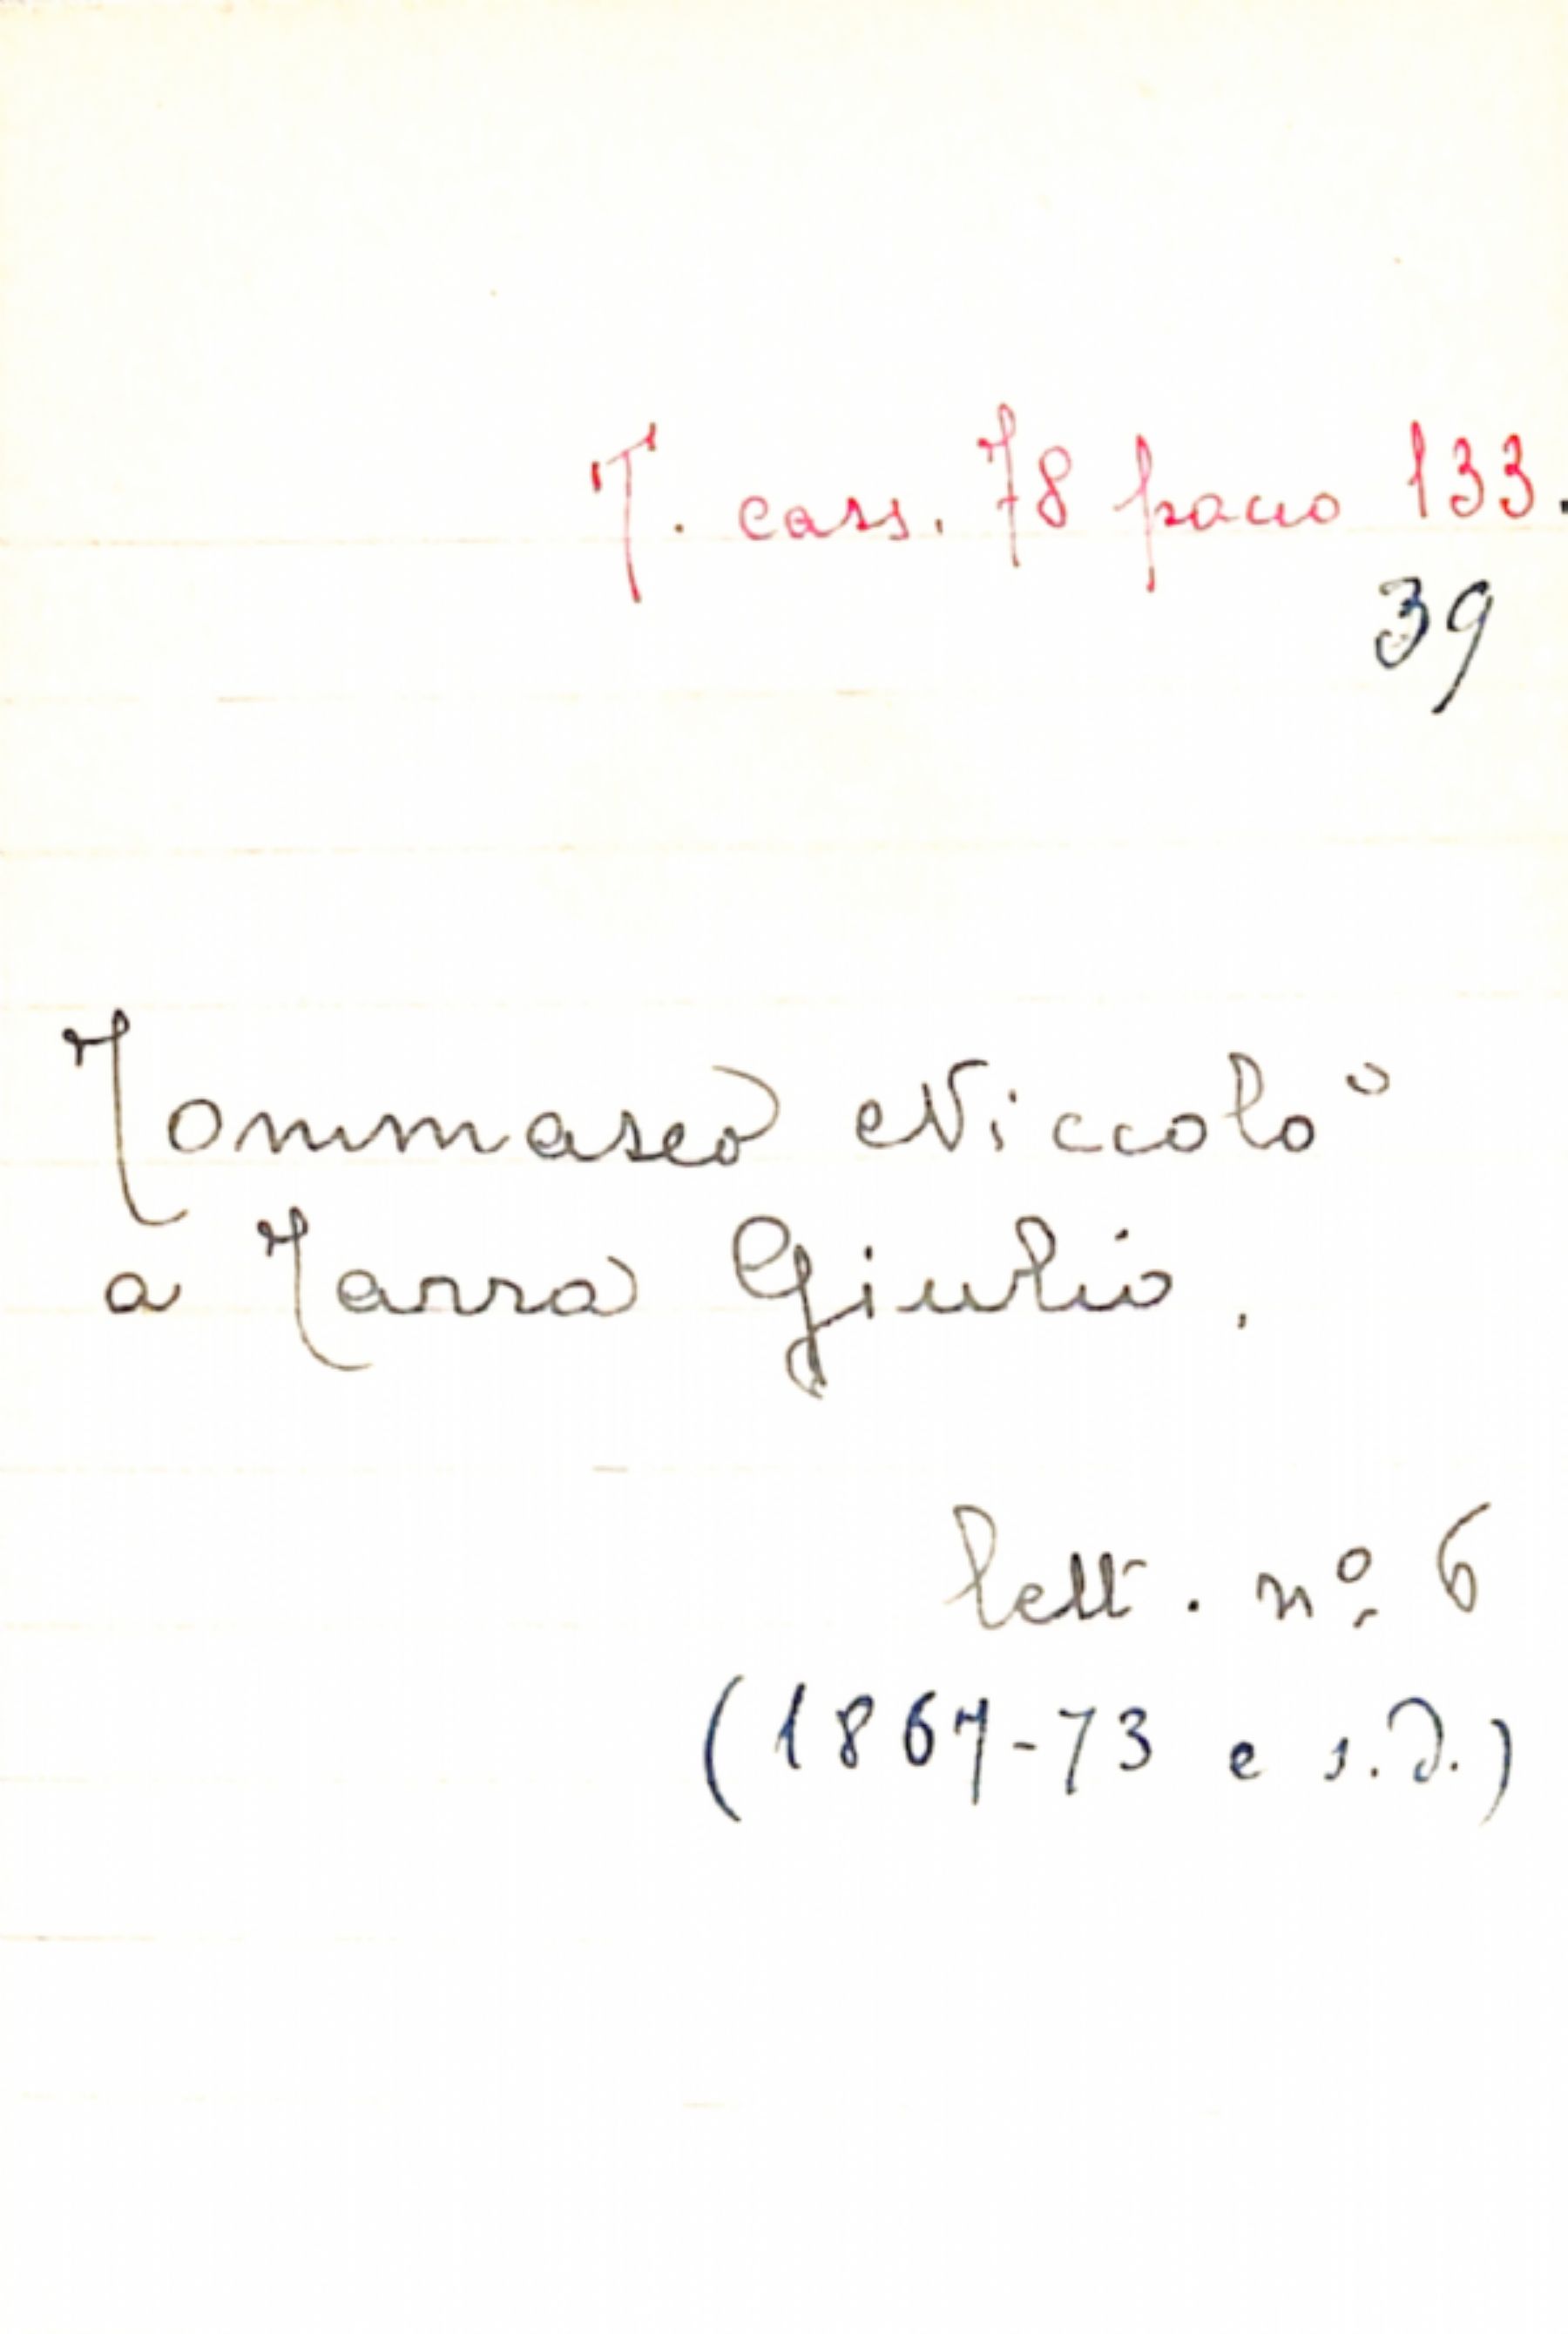 T. cass. 78 pacco 133.
39
Tommaseo Niccolò
a Tarra Giulio.
lett. nº 6
(1867-73 e s.d.)